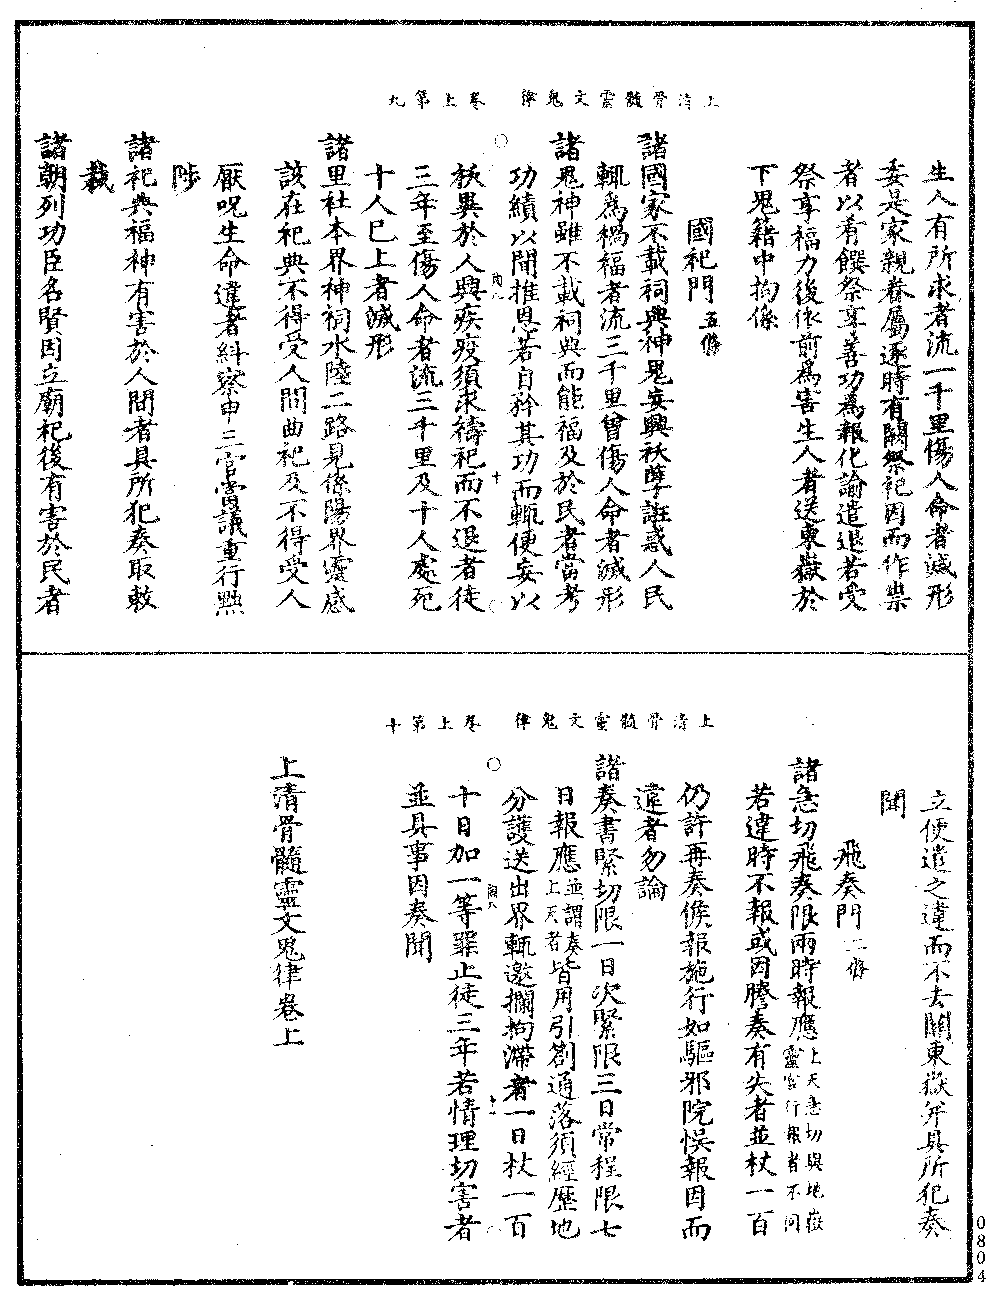 上清骨髓靈文鬼律　卷上第九
生人有所求者流一千里傷人命者滅形
委是家親眷屬逐時有闕祭祀因而作祟
者以肴饌祭享善功爲報化諭遣退若受
祭享福力後依前爲害生人者送東嶽於
下鬼籍中拘係
國祀門五條
諸國家不載祠典神鬼妄興祅孽誑惑人民
輒爲禍福者流三千里曾傷人命者滅形
諸鬼神雖不載祠典而能福及於民者當考
功績以聞推恩若自矜其功而輒便妄以
祅異於人興疾疫須求禱祀而不退者徒
三年至傷人命者流三千里及十人處死
十人已上者滅形
諸里社本界神祠水陸二路見係陽界靈感
該在祀典不得受人間曲祀及不得受人
厭呪生命違者糾察申三官當議重行黜
陟
諸祀典福神有害於人間者具所犯奏取敕
裁
諸朝列功臣名賢因立廟祀後有害於民者
上清骨髓靈文鬼律　卷上第十
立便遣之違而不去關東嶽并具所犯奏
聞
飛奏門二條
諸急切飛奏限兩時報應上天急切與地嶽靈官行報者不同
若違時不報或因謄奏有失者並杖一百
仍許再奏候報施行如驅邪院悞報因而
違者勿論
諸奏書緊切限一日次緊限三日常程限七
日報應並謂奏上天者皆用引劄通落須經歷地
分護送出界輒邀攔拘滯者一日杖一百
十日加一等罪止徒三年若情理切害者
並具事因奏聞
上清骨髓靈文鬼律卷上
0804